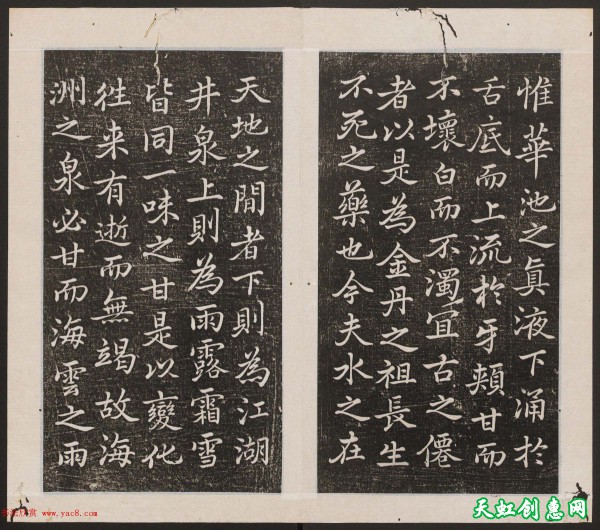 惟華池之眞液下涌於
舌底而上流於牙頰甘而
不壞白而不濁宜古之僊
者以是為金丹之祖長生
不死之藥也今夫水之在
天地之閒者下則為江湖
井泉上則為雨露霜雪
皆同一味之甘是以變化
徃来有逝而無竭故海
洲之泉必甘而海雲之雨
www.yac8.com
天虹创惠网